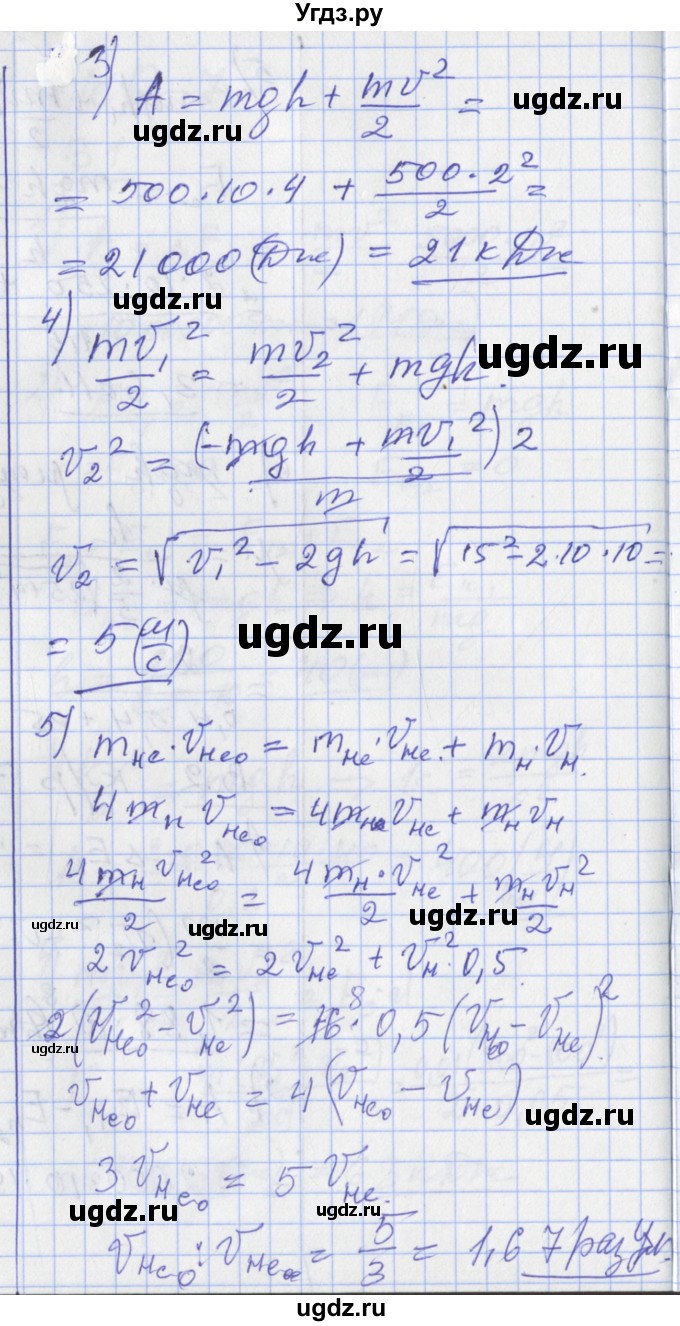 Угдз.ру
3) A = mgh + mv²/2 =
ugdz.ru ugdz.ru
= 500·10·4 + 500·2²/2 =
= 21000 (Дж) = 21 кДж
ugdz.ru
4) mv₁²/2 = mv₂²/2 + mgh.
ugdz.ru
v₂² = (-mgh + mv₁²/2)2/m
v₂ = √(v₁² - 2gh) = √(15² - 2·10·10) =
= 5 (м/с)
ugdz.ru
5) mнe·vнeo = mнe·vнe + mн·vн.
4mн vнeo = 4mн vнe + mн vн
4mн vнeo²/2 = 4mн·vнe²/2 + mн vн²/2
ugdz.ru ugdz.ru ugdz.ru
2vнeo² = 2vнe² + vн²·0,5
2(vнeo² - vнe²) = 16·⁸ 0,5(vнo - vнe)².
ugdz.ru
vнeo + vнe = 4(vнeo - vнe)
ugdz.ru
3vнeo = 5vнe.
ugdz.ru ugdz.ru
vнeo : vнe = 5/3 = 1,67 раз ум.
ugdz.ru